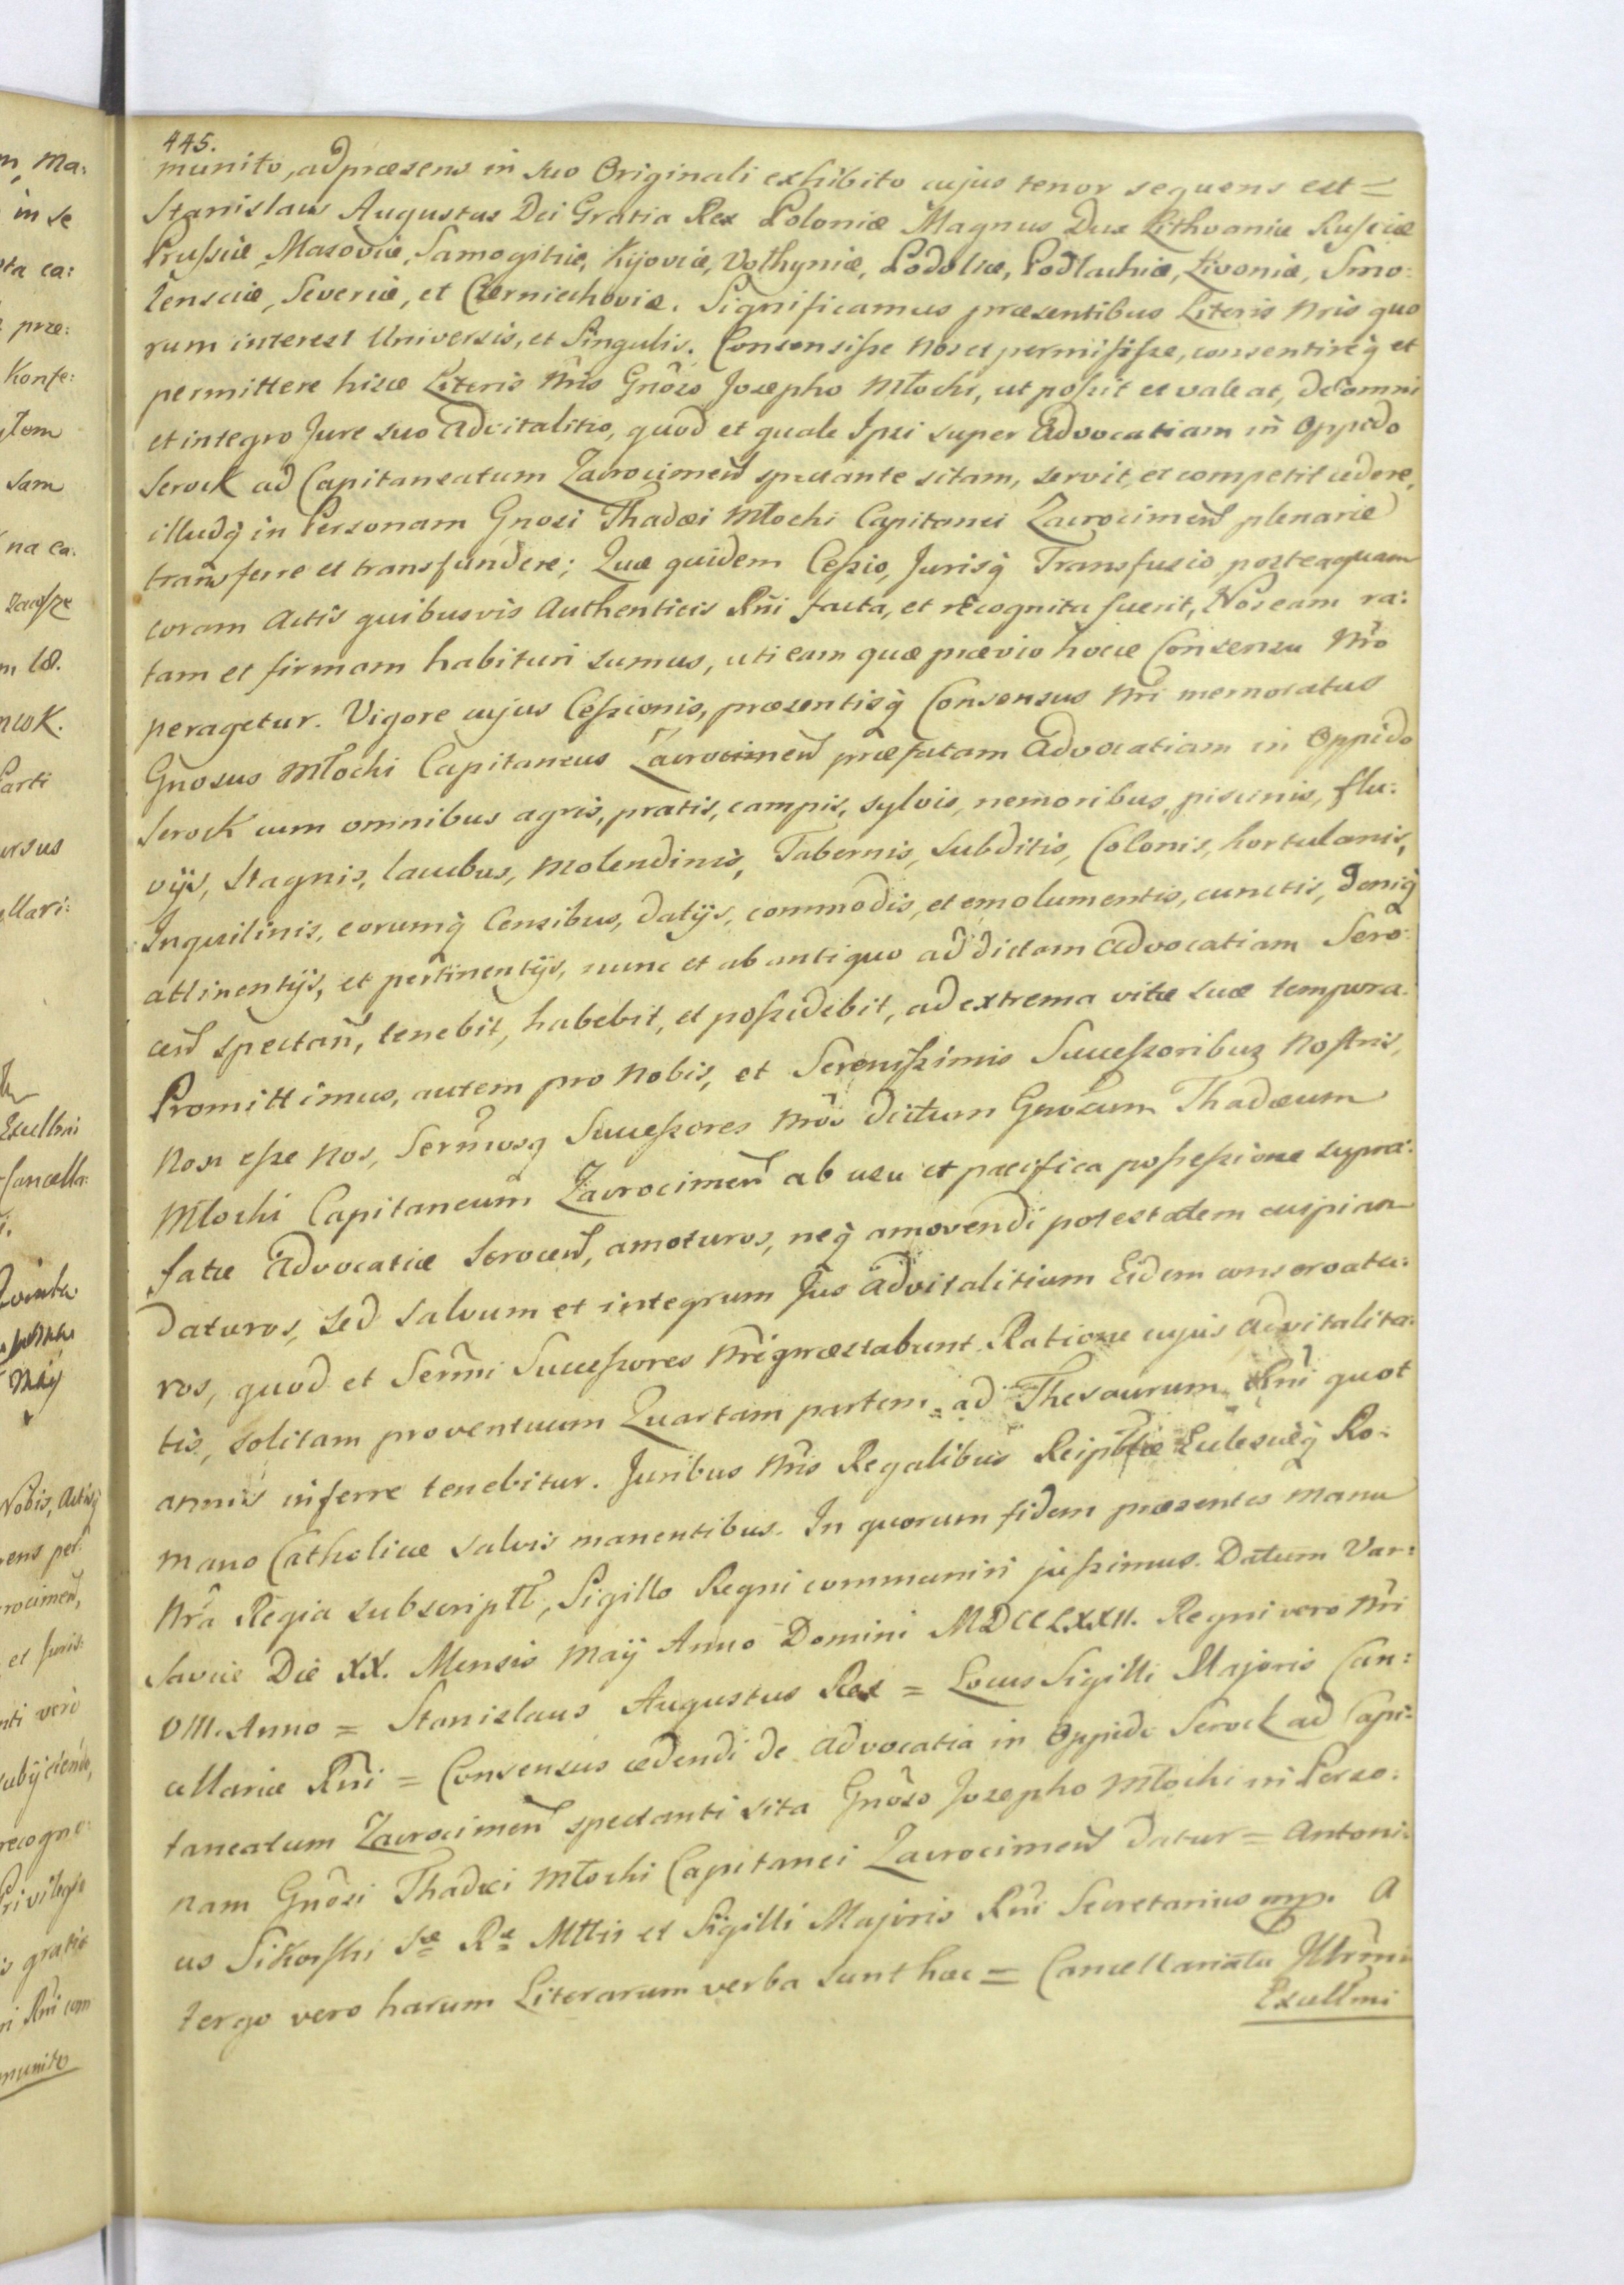 445.
munito, ad præsens in suo Originali exhibito cujus tenor sequens est =
Stanislaus Augustus Dei Gratia Rex Poloniæ Magnus Dux Lithvaniæ Russiæ
Prussiæ, Masoviæ, Samogitiæ, Kijoviæ, Volhyniæ, Podoliæ, Podlachiæ, Livoniæ, Smo:
lensciæ, Severiæ, et Czerniechoviæ. Significamus præsentibus Literis Nris quo
rum interest Universis, et Singulis. Consensisse Nos et permisisse, consentireq̃ et
permittere hisce Literis Nris Gnõso Josepho Młocki, ut possit et valeat, de omni
et integro Jure suo Advitalitio, quod et quale Ipsi super Advocatiam in Oppido
Serock ad Capitaneatum Zacrocimeñ spectante sitam, servit, et competit cedere,
illudq̃ in Personam Gnosi Thadæi Młocki Capitanei Zacrocimeñ plenarie
transferre et transfundere; Quæ quidem Cessio, Jurisq̃ Transfusio, posteaquam
coram Actis quibusvis Authenticis Rñi facta, et recognita fuerit, Nos eam ra:
tam et firmam habituri sumus, uti eam quæ prævio hocce Consensu Nrõ
peragetur. Vigore cujus Cessionis, præsentisq̃ Consensus Nri memoratus
Gñosus Młocki Capitaneus Zacrocimeñ præfatam Advocatiam in Oppido
Serock cum omnibus agris, pratis, campis, sylvis, nemoribus, piscinis, flu:
vijs, Stagnis, lacubus, Molendinis, Tabernis, Subditis, Colonis, hortulanis,
Inquilinis, eorumq̃ Censibus, datijs, commodis, et emolumentis, cunctis, deniq̃
attinentijs, et pertinentijs, nunc et ab antiquo ad dictam Advocatiam Sero:
ceñ spectañ, tenebit, habebit, et possidebit, ad extrema vitæ suæ tempora.
Promittimus, autem pro Nobis, et Serenissimis Successoribus Nostris,
Non esse Nos, Sermosq Successores Nrõs dictum Gnõsum Thadæum
Młocki Capitaneum Zacrocimeñ ab usu et pacifica possessione supra:
fatæ Advocatiæ Seroceñ, amoturos, neq̃ amovendi potestatem cuipiam
daturos, sed salvum et integrum Jus Advitalitium Eidem conservatu:
ros, quod et Sermĩ Successores Nri præstabunt. Ratione cujus Advitalita:
tis, solitam proventuum Quartam partem ad Thesaurum Rñi quot
annis inferre tenebitur. Juribus Nris Regalibus Reipblicæ Eclesiæq̃ Ro:
mano Catholicæ salvis manentibus. In quorum fidem præsentes manu
Nrã Regia subscriptt, Sigillo Regni communiri jussimus. Datum Var:
saviæ Die XX. Mensis Maij Anno Domini MDCCLXXII. Regni vero Nri
VIII. Anno = Stanislaus Augustus Rex = Locus Sigilli Majoris Can:
cellariæ Rñi = Consensus cedendi de Advocatia in Oppido Serock ad Capi:
taneatum Zacrocimeñ spectanti sita Gnõso Josepho Młocki in Perso:
nam Gnõsi Thadæi Młocki Capitanei Zacrocimeñ datur = Antoni:
us Sikorski Sæ Ræ Mttis et Sigilli Majoris Rñi Secretarius mp. A
tergo vero harum Literarum verba sunt hæc = Cancellariatu Illrmi
Excellmi